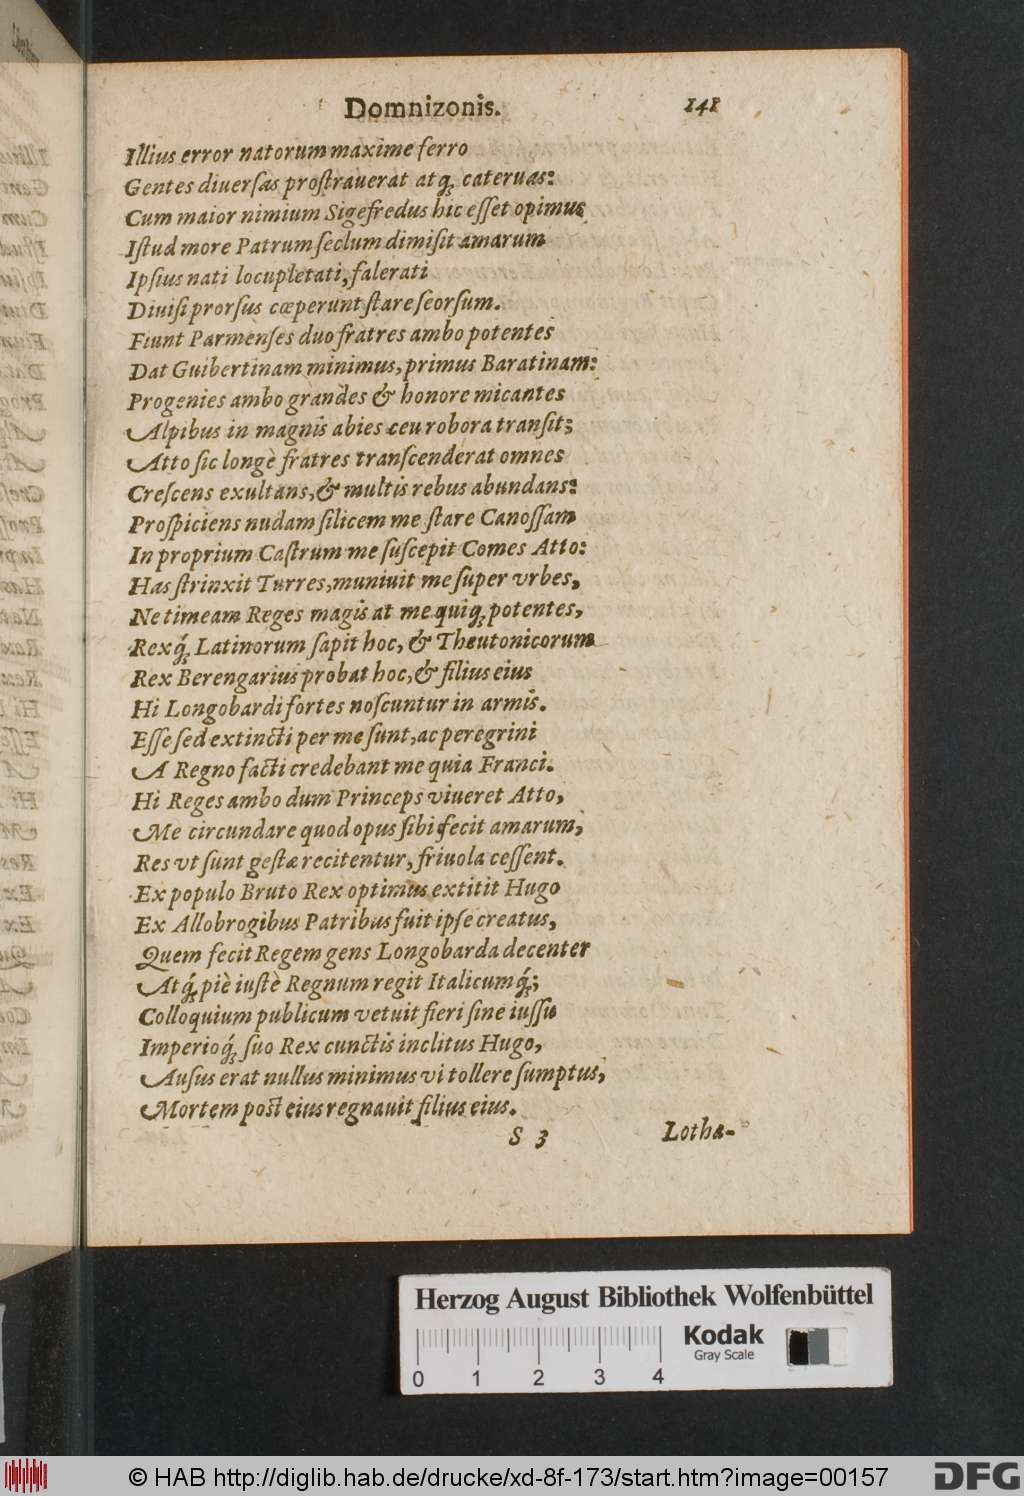 Domnizonis. 141
Illius error natorum maxime ferro
Gentes diuerſas proſtrauerat atq́; cateruas:
Cum maior nimium Sigefredus hic eſſet opimus
Iſtud more Patrum ſeclum dimiſit amarum
Ipſius nati locupletati, falerati
Diuiſi prorſus cœperunt ſtare ſeorſum.
Fiunt Parmenſes duo fratres ambo potentes
Dat Guibertinam minimus, primus Baratinam:
Progenies ambo grandes & honore micantes
Alpibus in magnis abies ceu robora tranſit;
Atto ſic longè fratres tranſcenderat omnes
Creſcens exultans, & multis rebus abundans:
Proſpiciens nudam ſilicem me ſtare Canoſſam
In proprium Caſtrum me ſuſcepit Comes Atto:
Has ſtrinxit Turres, muniuit me ſuper vrbes,
Ne timeam Reges magis at me quiq; potentes,
Rexq́; Latinorum ſapit hoc, & Theutonicorum
Rex Berengarius probat hoc, & filius eius
Hi Longobardi fortes noſcuntur in armis.
Eſſe ſed extincti per me ſunt, ac peregrini
A Regno facti credebant me quia Franci.
Hi Reges ambo dum Princeps viueret Atto,
Me circundare quod opus ſibi fecit amarum,
Res vt ſunt geſtæ recitentur, friuola ceſſent.
Ex populo Bruto Rex optimus extitit Hugo
Ex Allobrogibus Patribus fuit ipſe creatus,
Quem fecit Regem gens Longobarda decenter
Atq́; piè iuſtè Regnum regit Italicumq́;;
Colloquium publicum vetuit fieri ſine iuſſu
Imperioq́; ſuo Rex cunctis inclitus Hugo,
Auſus erat nullus minimus vi tollere ſumptus,
Mortem poſt eius regnauit filius eius.
S 3 Lotha-
Herzog August Bibliothek Wolfenbüttel
Kodak
Gray Scale
0 1 2 3 4
© HAB http://diglib.hab.de/drucke/xd-8f-173/start.htm?image=00157
DFG